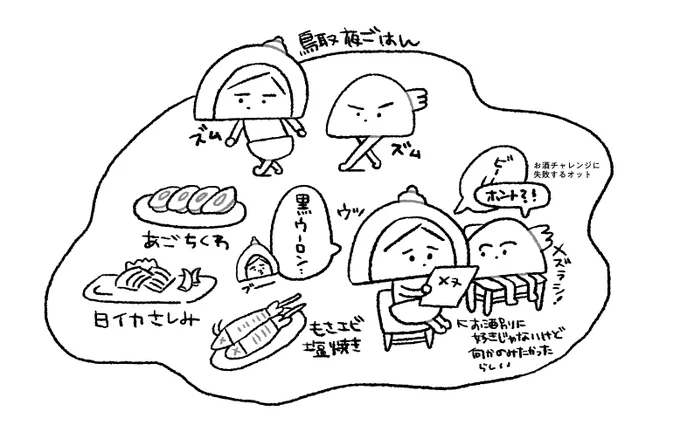 鳥取夜ごはん
ズム
ズム
お酒チャレンジに
失敗するオット
ビー
ホント?!
メズラシ!!
ウッ
黒ウーロン…
ブー
メヌ
あごちくわ
白イカさしみ
もさエビ
塩焼き
お酒別に
好きじゃないけど
何かのみたかった
らしい